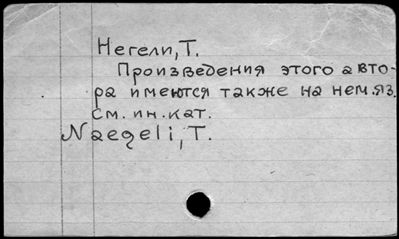 Негели, Т.
Произведения этого авто-
ра имеются также на нем. яз.
см. ин. кат.
Naegeli, T.